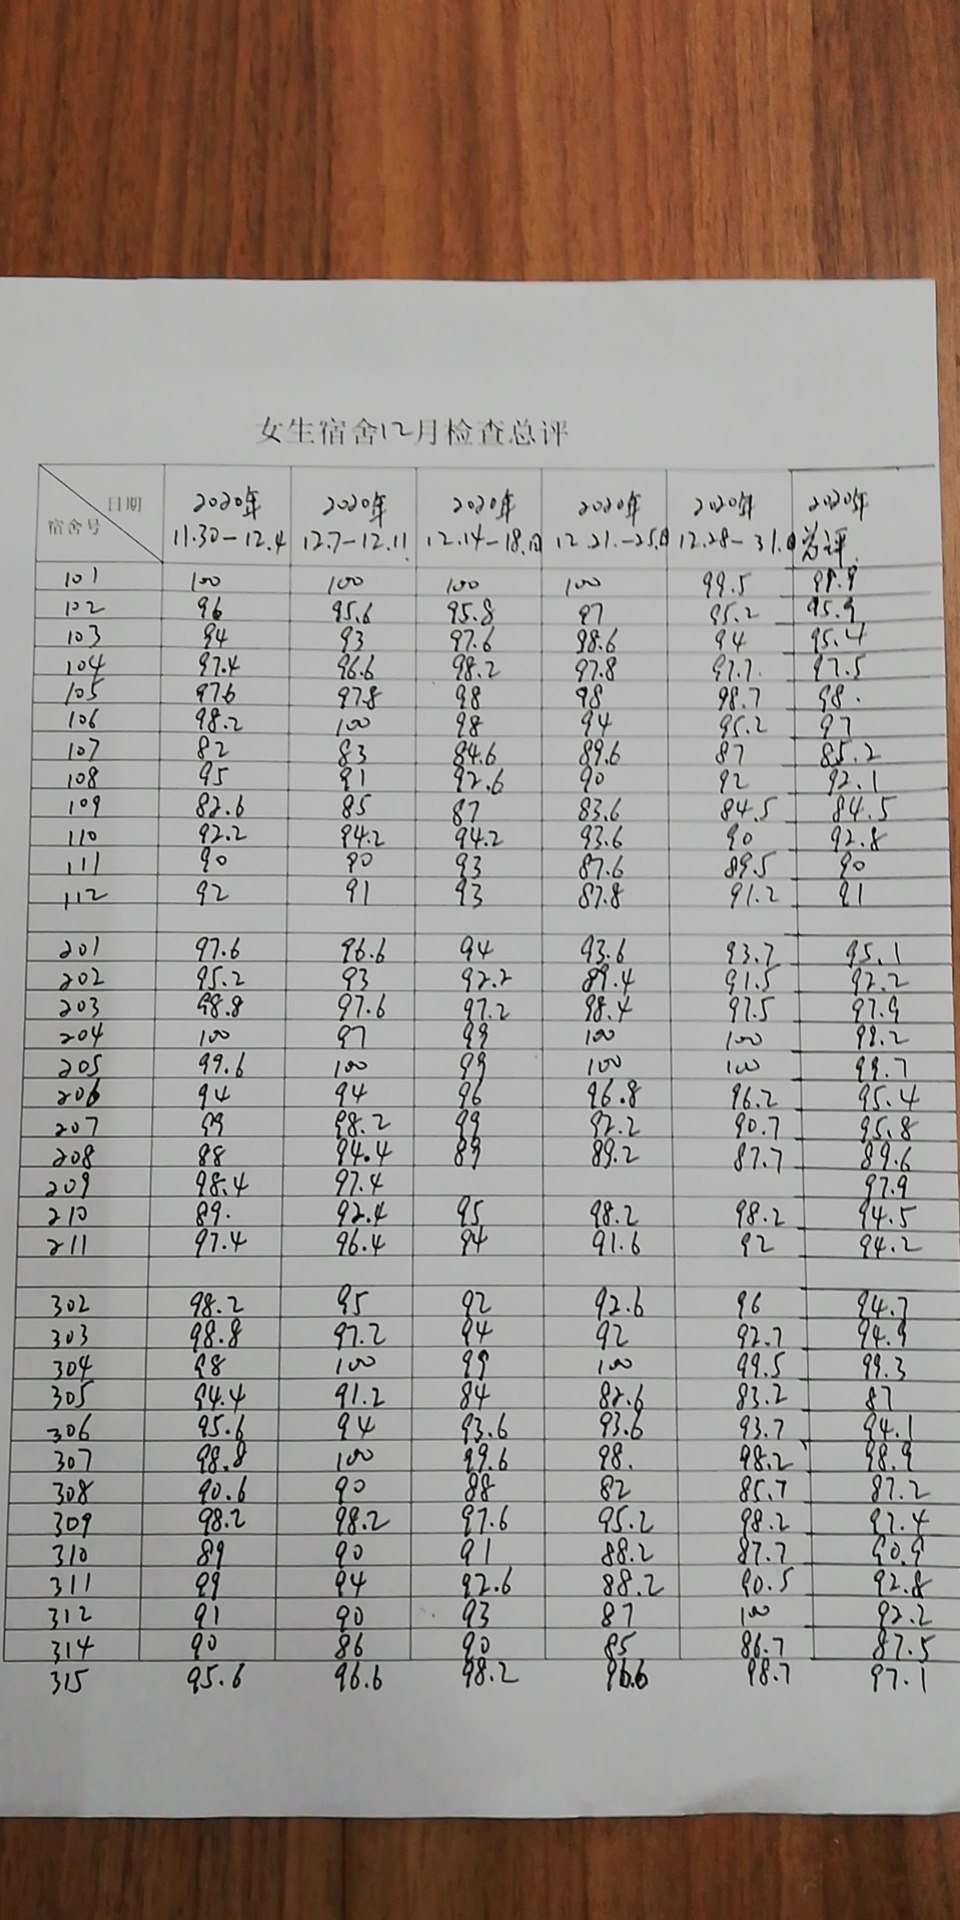 女生宿舍12月检查总评
日期 宿舍号 2020年 11.30-12.4 2020年 12.7-12.11 2020年 12.14-18日 2020年 12.21-25日 2020年 12.28-31日 2020年 总评
101 100 100 100 100 99.5 99.9
102 96 95.6 95.8 97 95.2 95.9
103 94 93 97.6 98.6 94 95.4
104 97.4 96.6 98.2 97.8 97.7 97.5
105 97.6 97.8 98 98 98.7 98.
106 98.2 100 98 94 95.2 97
107 82 83 84.6 89.6 87 85.2
108 95 91 92.6 90 92 92.1
109 82.6 85 87 83.6 84.5 84.5
110 92.2 94.2 94.2 93.6 90 92.8
111 90 90 93 87.6 89.5 90
112 92 91 93 87.8 91.2 91
201 97.6 96.6 94 93.6 93.7 95.1
202 95.2 93 92.2 89.4 91.5 92.2
203 98.8 97.6 97.2 98.4 97.5 97.9
204 100 97 99 100 100 99.2
205 99.6 100 99 100 100 99.7
206 94 94 96 96.8 96.2 95.4
207 99 98.2 99 92.2 90.7 95.8
208 88 94.4 89 89.2 87.7 89.6
209 98.4 97.4 97.9
210 89. 92.4 95 98.2 98.2 94.5
211 97.4 96.4 94 91.6 92 94.2
302 98.2 95 92 92.6 96 94.7
303 98.8 97.2 94 92 92.7 94.9
304 98 100 99 100 99.5 99.3
305 94.4 91.2 84 82.6 83.2 87
306 95.6 94 93.6 93.6 93.7 94.1
307 98.8 100 99.6 98. 98.2 98.9
308 90.6 90 88 82 85.7 87.2
309 98.2 98.2 97.6 95.2 98.2 97.4
310 89 90 91 88.2 87.7 90.9
311 99 94 92.6 88.2 90.5 92.8
312 91 90 93 87 100 92.2
314 90 86 90 85 86.7 87.5
315 95.6 96.6 98.2 96.6 98.7 97.1